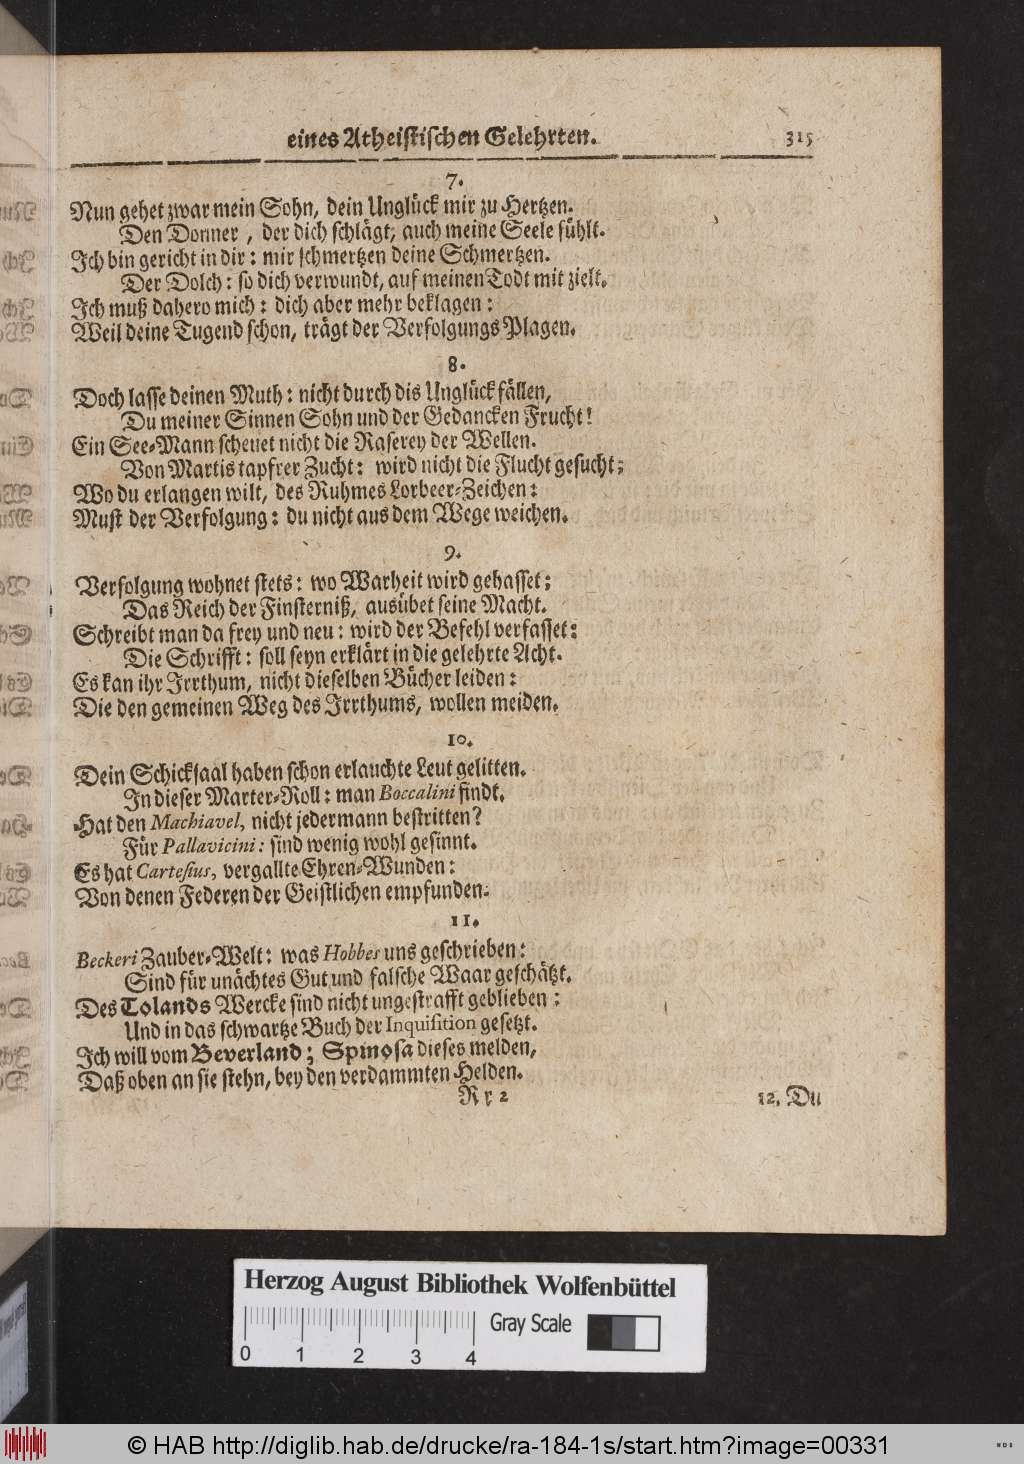 eines Atheistischen Gelehrten. 315
7.
Nun gehet zwar mein Sohn, dein Unglück mir zu Hertzen.
Den Donner, der dich schlägt; auch meine Seele fühlt.
Ich bin gericht in dir: mir schmertzen deine Schmertzen.
Der Dolch: so dich verwundt, auf meinen Todt mit zielt.
Ich muß dahero mich: dich aber mehr beklagen:
Weil deine Tugend schon, trägt der Verfolgungs Plagen.
8.
Doch lasse deinen Muth: nicht durch dis Unglück fällen,
Du meiner Sinnen Sohn und der Gedancken Frucht!
Ein See-Mann scheuet nicht die Raserey der Wellen.
Von Martis tapfrer Zucht: wird nicht die Flucht gesucht;
Wo du erlangen wilt, des Ruhmes Lorbeer-Zeichen:
Must der Verfolgung: du nicht aus dem Wege weichen.
9.
Verfolgung wohnet stets: wo Warheit wird gehasset;
Das Reich der Finsterniß, ausübet seine Macht.
Schreibt man da frey und neu: wird der Befehl verfasset:
Die Schrifft: soll seyn erklärt in die gelehrte Acht.
Es kan ihr Irrthum, nicht dieselben Bücher leiden:
Die den gemeinen Weg des Irrthums, wollen meiden.
10.
Dein Schicksaal haben schon erlauchte Leut gelitten.
In dieser Marter-Roll: man Boccalini findt.
Hat den Machiavel, nicht jedermann bestritten?
Für Pallavicini: sind wenig wohl gesinnt.
Es hat Cartesius, vergallte Ehren-Wunden:
Von denen Federen der Geistlichen empfunden.
11.
Beckeri Zauber-Welt: was Hobbes uns geschrieben:
Sind für unächtes Gut und falsche Waar geschätzt.
Des Tolands Wercke sind nicht ungestrafft geblieben;
Und in das schwartze Buch der Inquisition gesetzt.
Ich will vom Beverland; Spinosa dieses melden,
Daß oben an sie stehn, bey den verdammten Helden.
Rr 2 12. Du
Herzog August Bibliothek Wolfenbüttel
Gray Scale
0 1 2 3 4
© HAB http://diglib.hab.de/drucke/ra-184-1s/start.htm?image=00331